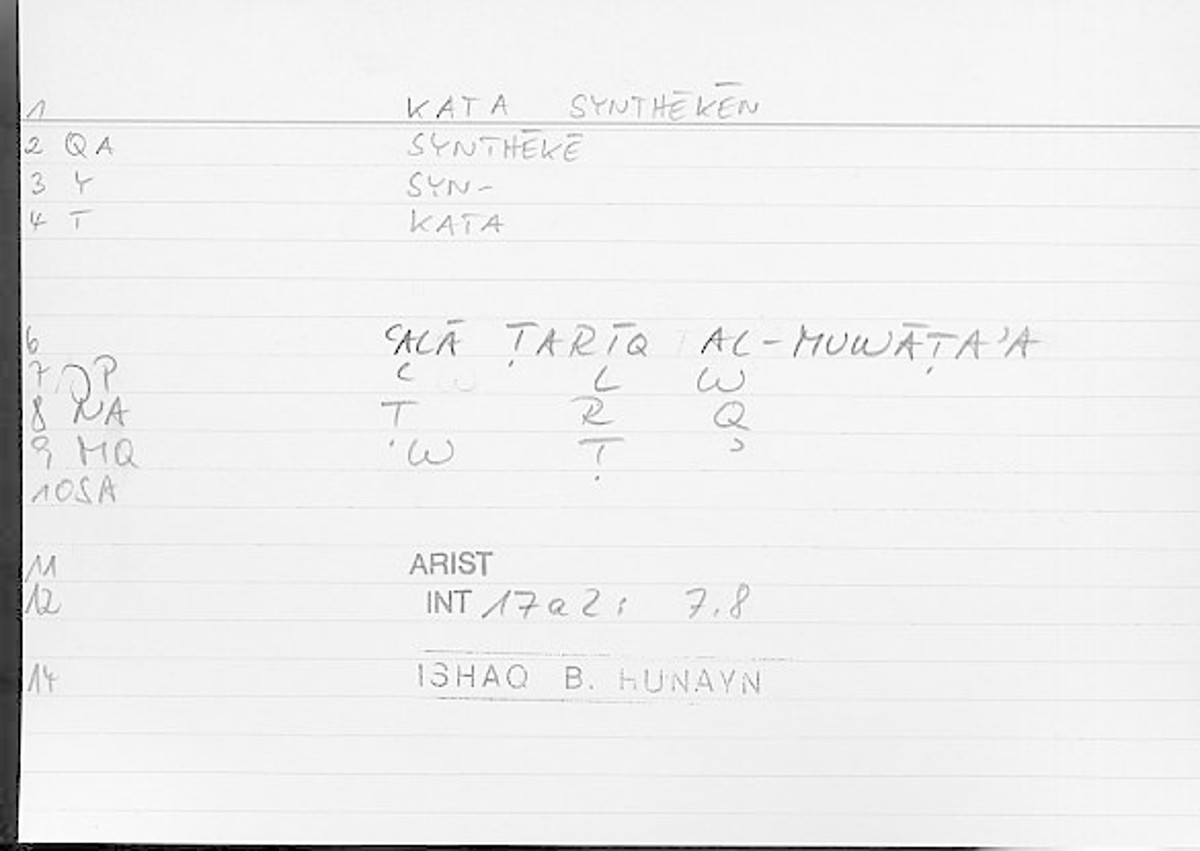 1 KATA SYNTHĒKĒN
2 QA SYNTHĒKĒ
3 Y SYN-
4 T KATA
6 ʿALĀ ṬARĪQ AL-MUWĀṬAʾA
7 QP ʿ L W
8 NA T R Q
9 MQ ʾW Ṭ ʾ
10 SA
11 ARIST
12 INT 17a2: 7.8
14 ISHAQ B. HUNAYN